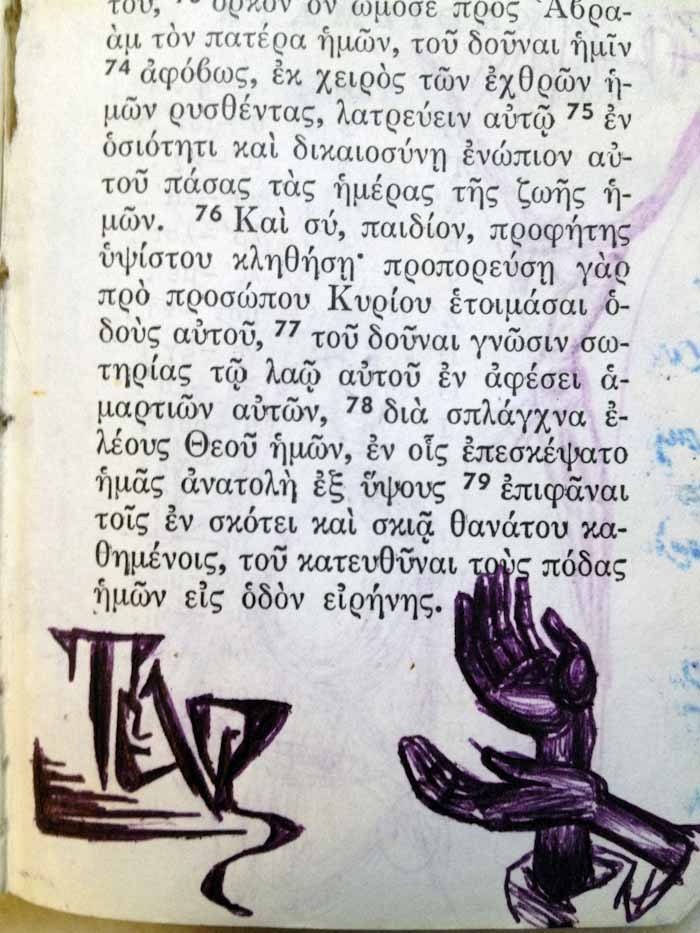 του, 73 ὅρκον ὃν ὤμοσε πρὸς Ἀβρα-
ὰμ τὸν πατέρα ἡμῶν, τοῦ δοῦναι ἡμῖν
74 ἀφόβως, ἐκ χειρὸς τῶν ἐχθρῶν ἡ-
μῶν ρυσθέντας, λατρεύειν αὐτῷ 75 ἐν
ὁσιότητι καὶ δικαιοσύνῃ ἐνώπιον αὐ-
τοῦ πάσας τὰς ἡμέρας τῆς ζωῆς ἡ-
μῶν. 76 Καὶ σύ, παιδίον, προφήτης
ὑψίστου κληθήσῃ· προπορεύσῃ γὰρ
πρὸ προσώπου Κυρίου ἑτοιμάσαι ὁ-
δοὺς αὐτοῦ, 77 τοῦ δοῦναι γνῶσιν σω-
τηρίας τῷ λαῷ αὐτοῦ ἐν ἀφέσει ἁ-
μαρτιῶν αὐτῶν, 78 διὰ σπλάγχνα ἐ-
λέους Θεοῦ ἡμῶν, ἐν οἷς ἐπεσκέψατο
ἡμᾶς ἀνατολὴ ἐξ ὕψους 79 ἐπιφᾶναι
τοῖς ἐν σκότει καὶ σκιᾷ θανάτου κα-
θημένοις, τοῦ κατευθῦναι τοὺς πόδας
ἡμῶν εἰς ὁδὸν εἰρήνης.